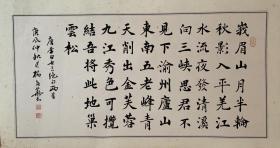 峩眉山月半輪
秋影入平羌江
水流夜發清溪
向三峽思君不
見下渝州廬山
東南五老峰青
天削出金芙蓉
九江秀色可攬
結吾將此地巢
雲松
唐李白七言絕句两首
仲秋楊